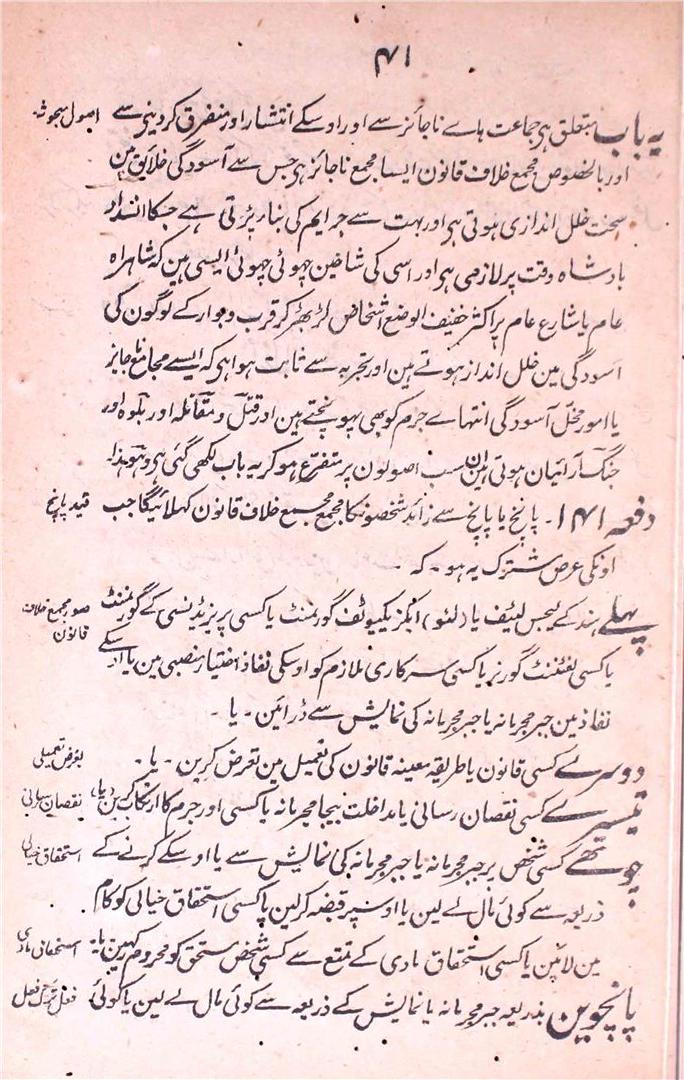 ۱۴۱
یہ باب متعلق ہی جماعت ہاے ناجائز سے اور اوسکے انتشار اور متفرق کردینی سے
اصول مبحوثہ
اور بالخصوص مجمع خلاف قانون ایسا مجمع ناجائز ہی جس سے آسودگی خلایق مین
سخت خلل اندازی ہوتی ہی اور بہت سے جرایم کی بنا پڑتی ہے جسکا انسداد
بادشاہ وقت پر لازمی ہی اور اسی کی شاخین چھوٹی چھوٹی ایسی ہین کہ شاہراہ
عام یا شارع عام پر اکثر خفیف الوضع اشخاص لڑ بھڑ کر قرب وجوار کے لوگون کی
آسودگی مین خلل انداز ہوتے ہین اور تجربہ سے ثابت ہوا ہی کہ ایسے مجامع ناجایز
یا امور مخل آسودگی انتہاے جرم کو بھی پہونچتے ہین اور قتل و مقاتلہ اور بلوہ اور
جنگ آرائیان ہوتی ہین ان سب اصولون پر متفرع ہوکر یہ باب لکھی گئی ہی وہوہذا
دفعہ ۱۴۱ ۔ پانچ یا پانچ سے زائد شخصونکا مجمع مجمع خلاف قانون کہلائیگا جب
قید پانچ
اونکی غرض مشترک یہ ہو ۔ کہ ۔
پہلے ہند کے لیجس لیٹیف یا (لئو) ایگزیکیوٹف گورمنٹ یا کسی پریزیڈنسی کے گورمنٹ
صو مجمع خلاف
قانون
یا کسی لفٹننٹ گورنر یا کسی سرکاری ملازم کو اوسکی نفاذ اختیار منصبی مین یا اوسکے
نفاذ مین جبر مجرمانہ یا جبر مجرمانہ کی نمایش سے ڈرائین ۔ یا ۔
دوسرے کسی قانون یا طریقہ معینہ قانون کی تعمیل مین تعرض کرین ۔ یا ۔
بغرض تعمیلی
تیسرے کسی نقصان رسانی یا مداخلت بیجا مجرمانہ یا کسی اور جرم کا ارتکاب کرین ۔ یا ۔
نقصان رسانی
چوتھے کسی شخص پر جبر مجرمانہ یا جبر مجرمانہ کی نمایش سے یا اوسکے کرنے کے
استحقاق خیالی
ذریعہ سے کوئی مال لے لین یا اوسپر قبضہ کرلین یا کسی استحقاق خیالی کو کام
مین لائین یا کسی استحقاق مادی کے تمتع سے کسی شخص مستحق کو محروم کرین یا ۔
استحقاق مادی
پانچوین بذریعہ جبر مجرمانہ یا نمایش کے ذریعہ سے کوئی مال لے لین یا کوئی
فعل ترک فعل